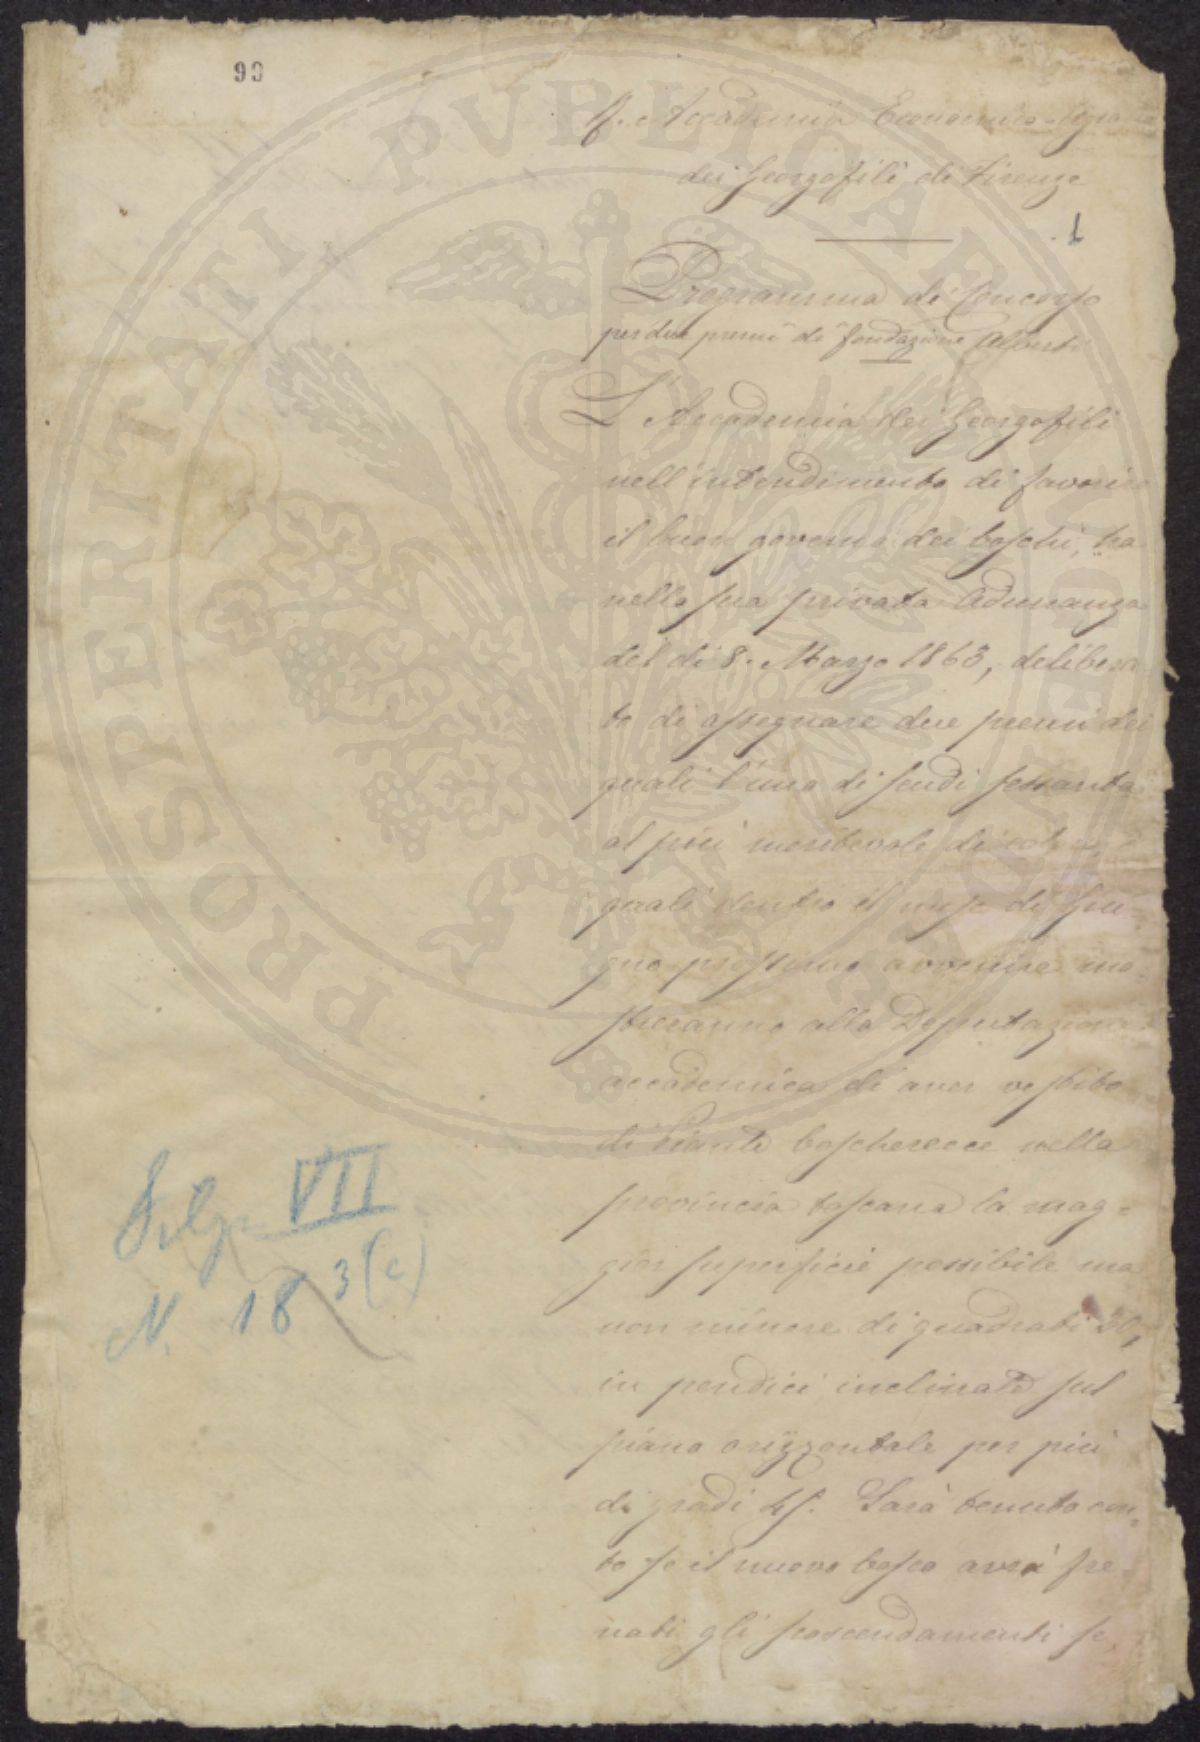 90
R. Accademia Economico-Agraria
dei Georgofili di Firenze
1
Programma di Concorso
per due premi di fondazione Alberti
L'Accademia dei Georgofili
nell'intendimento di favorire
il buon governo dei boschi, ha
nella sua privata Adunanza
del dì 8. Marzo 1863, delibera-
to di assegnare due premi dei
quali l'uno di scudi sessanta
al più meritevole di coloro
quali dentro il mese di Giu-
gno prossimo avvenire mo-
streranno alla Deputazione
accademica di aver vestito
di Piante boscherecce nella
provincia toscana la mag-
gior superficie possibile ma
non minore di quadrati 30,
in pendici inclinate sul
piano orizzontale per più
di gradi 45. Sarà tenuto con-
to se il nuovo bosco avrà fre-
nati gli scoscendimenti se
VII
N. 18 3(c)
PROSPERITATI PVBLICAE